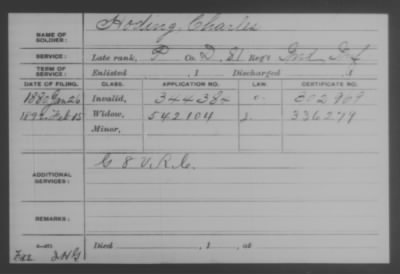 Hoding, Charles
NAME OF SOLDIER:
SERVICE: Late rank, P Co. D, 81 Reg't Ind Inf
TERM OF SERVICE: Enlisted , 1 Discharged , 1
DATE OF FILING. CLASS. APPLICATION NO. LAW. CERTIFICATE NO.
1880 Jan 26 Invalid, 344384 302909
1892 Feb 15 Widow, 542104 336279
Minor,
ADDITIONAL SERVICES: G 8 V.R.C.
REMARKS:
Died , 1 , at